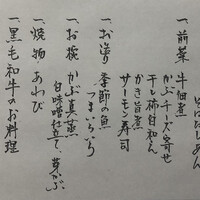 一、前菜 牛佃煮
かぶチーズ寄せ
干し柿白和え
かき旨煮
サーモン寿司
一、お造り 季節の魚
つまいろいろ
一、お椀 かぶ真蒸
白味噌仕立て、芽かぶ
一、焼物 あわび
一、黒毛和牛のお料理